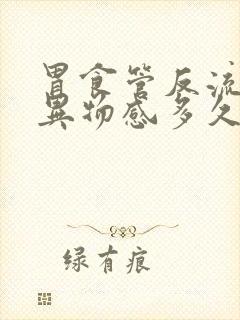 胃食管反流
异物感多久
绿有痕